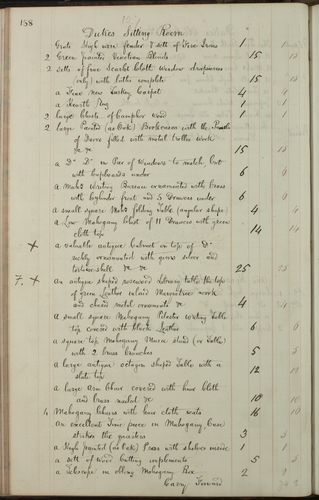 158
Duties Sitting Room
Grate High wire fender & sett of Fire Irons 1
2 Green painted Venetian Blinds 15 15
2 setts of fine Scarlet cloth window draperies
only) with laths complete 15 15
a Fine new Turkey Carpet 4 4
a Hearth Rug 1 1
2 large Chests of Camphor Wood 1 1
2 large Painted (as Oak) Bookcases with the
of Doors filled with metal trellis work
&c &c 15 15
a Do Do in Pier of Windows to match but
with Cupboards under 6 6
a Mahy Writing Bureau ornamented with brass
with Cylinder front and 5 Drawers under 6 6
a small square Mahy folding Table (angular shape) 4 4
a Low Mahogany Chest of 11 Drawers with green
cloth top 14 14
x a valuable antique Cabinet on top of Do
richly ornamented with gems silver and
tortoiseshell &c &c 25 25
7. x an antique shaped rosewood Library table the top
of Green Leather inlaid Marquetrie work
and chased metal ornaments &c 4 4
a small square Mahogany Pilaster Writing Table
top covered with black Leather 6 6
a square top Mahogany Music stand (or Table)
with 2 brass branches 5 5
a large antique octagon shaped Table with a
slate top 12 12
a large Arm Chair covered with hair cloth
and brass nailed &c 10 10
4 Mahogany Chairs with hair cloth seats 16 16
an excellent Time piece in Mahogany Case
strikes the quarters 3 3
a High painted (as Oak) Press with shelves inside 1 1
a sett of Wood Cutting implements 5 5
a Telescope in oblong Mahogany Box 2 2
Carry Forward